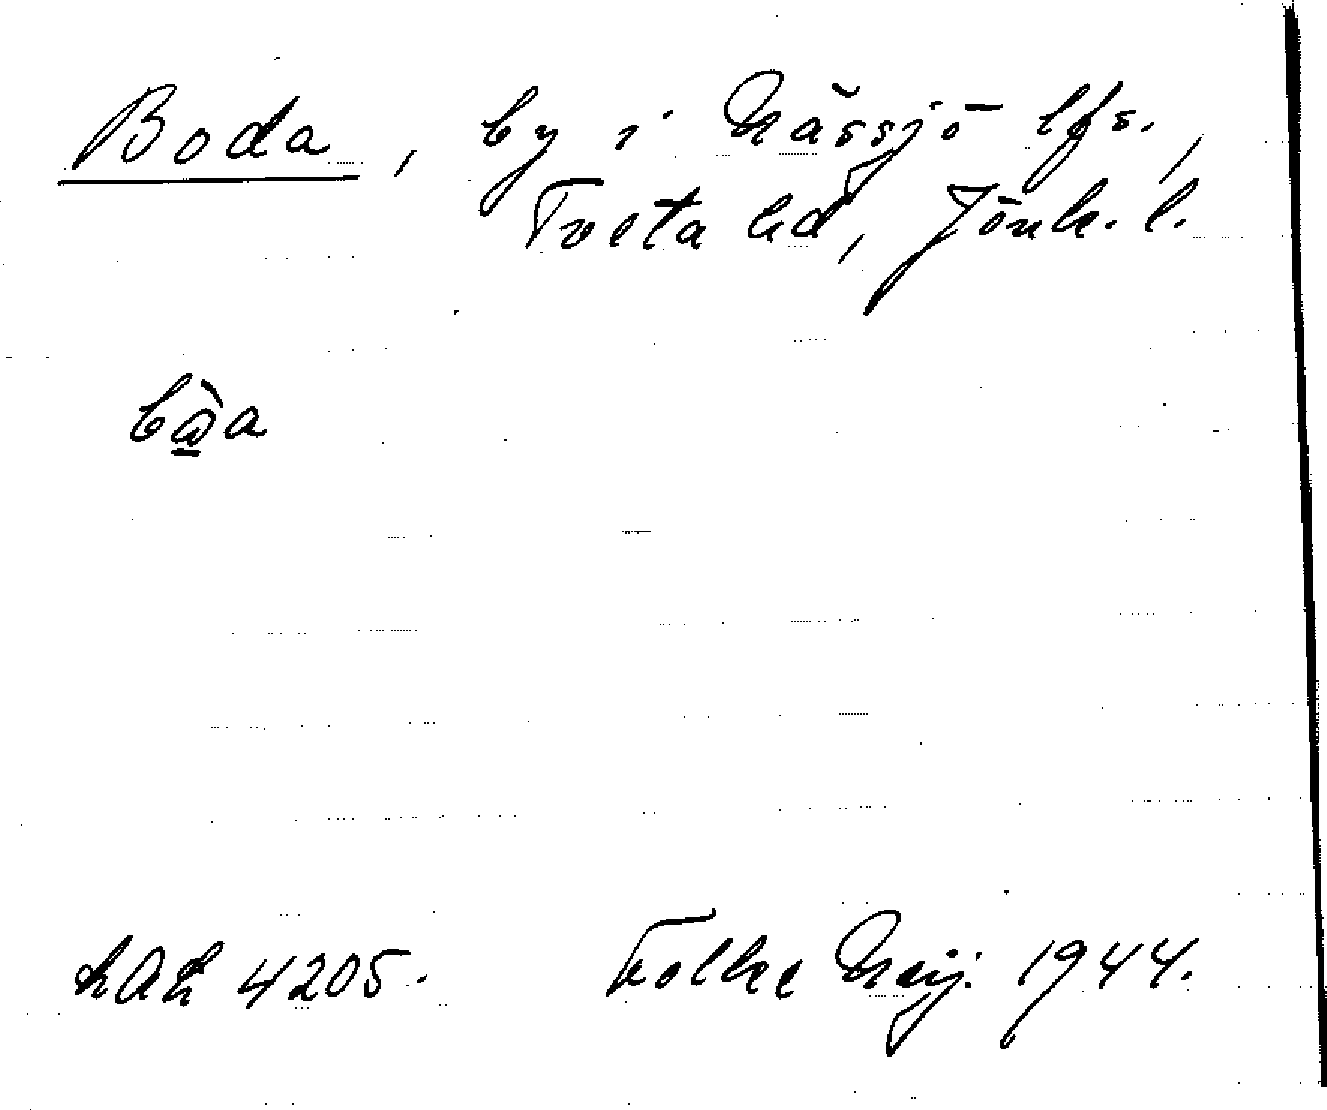 Boda, by i Nässjö lfs.,
Tveta hd, Jönk. l.
LAL 4205. Folke Neij. 1944.